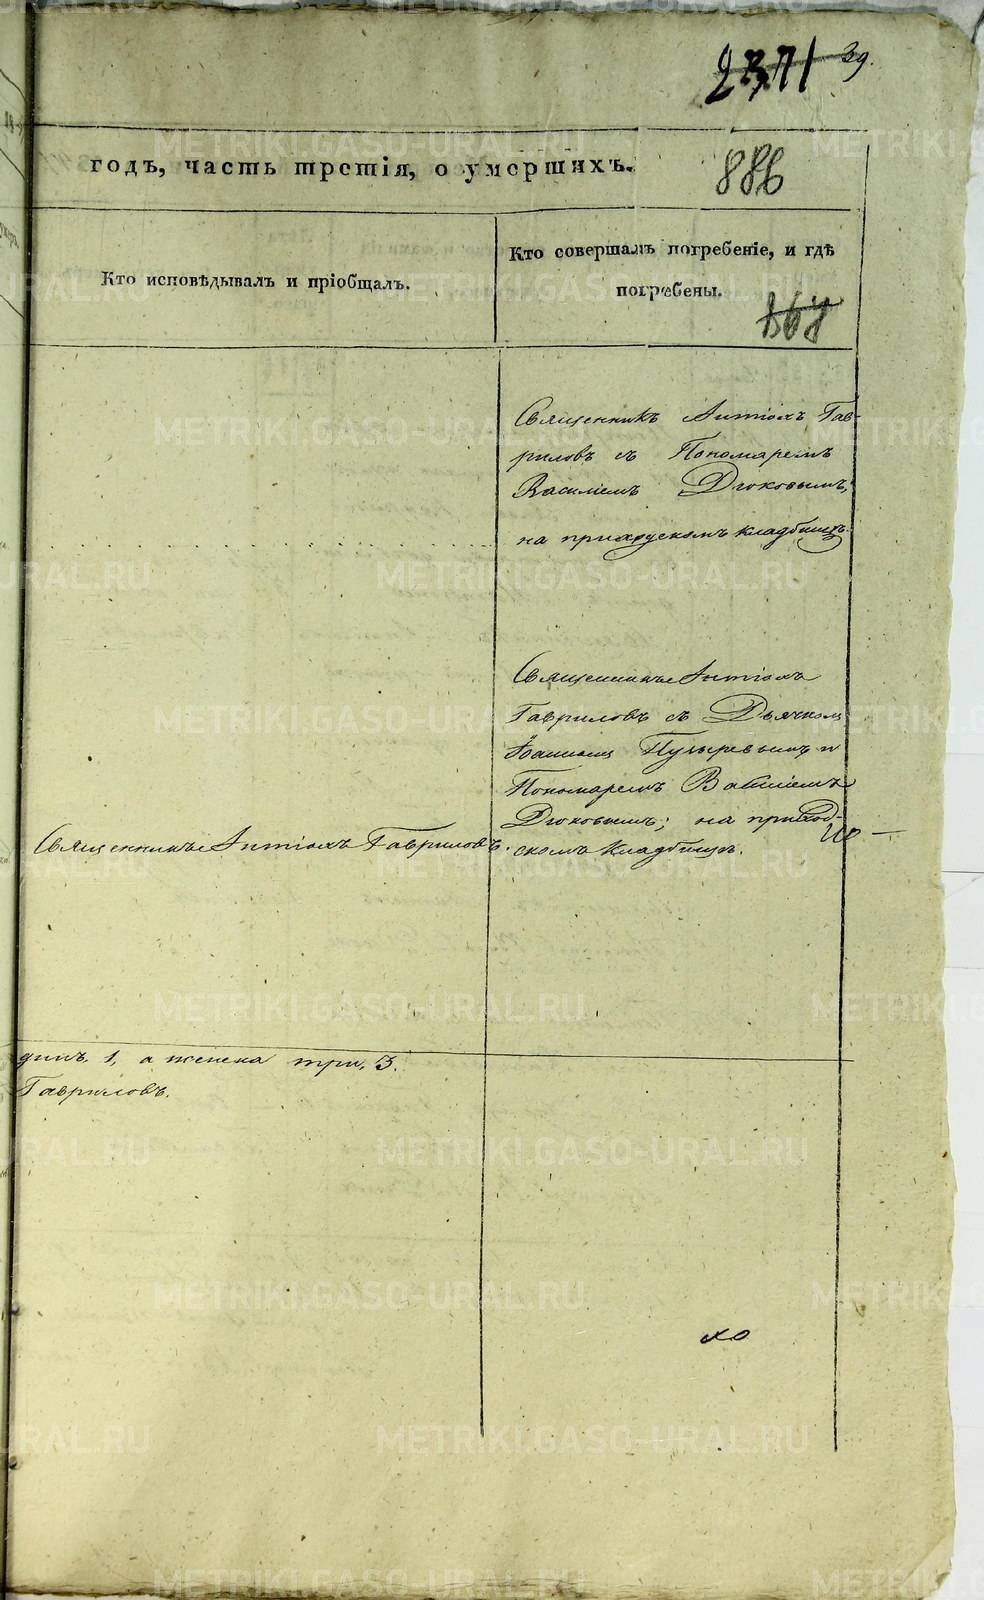 2371 39.
годъ, часть третія, о умершихъ.
886
Кто исповѣдывалъ и пріобщалъ.
Кто совершалъ погребеніе, и гдѣ
погребены.
868
Священникъ Антіохъ Гав-
риловъ съ Пономаремъ
Василіемъ Дюковымъ,
на приходскомъ кладбищѣ.
Священникъ Антіохъ
Гавриловъ съ Дьячкомъ
Іоанномъ Пузыревымъ и
Пономаремъ Василіемъ
Дюковымъ; на приход-
скомъ кладбищѣ.
Священникъ Антіохъ Гавриловъ.
динъ 1, а женска три, 3.
Гавриловъ.
METRIKI.GASO-URAL.RU